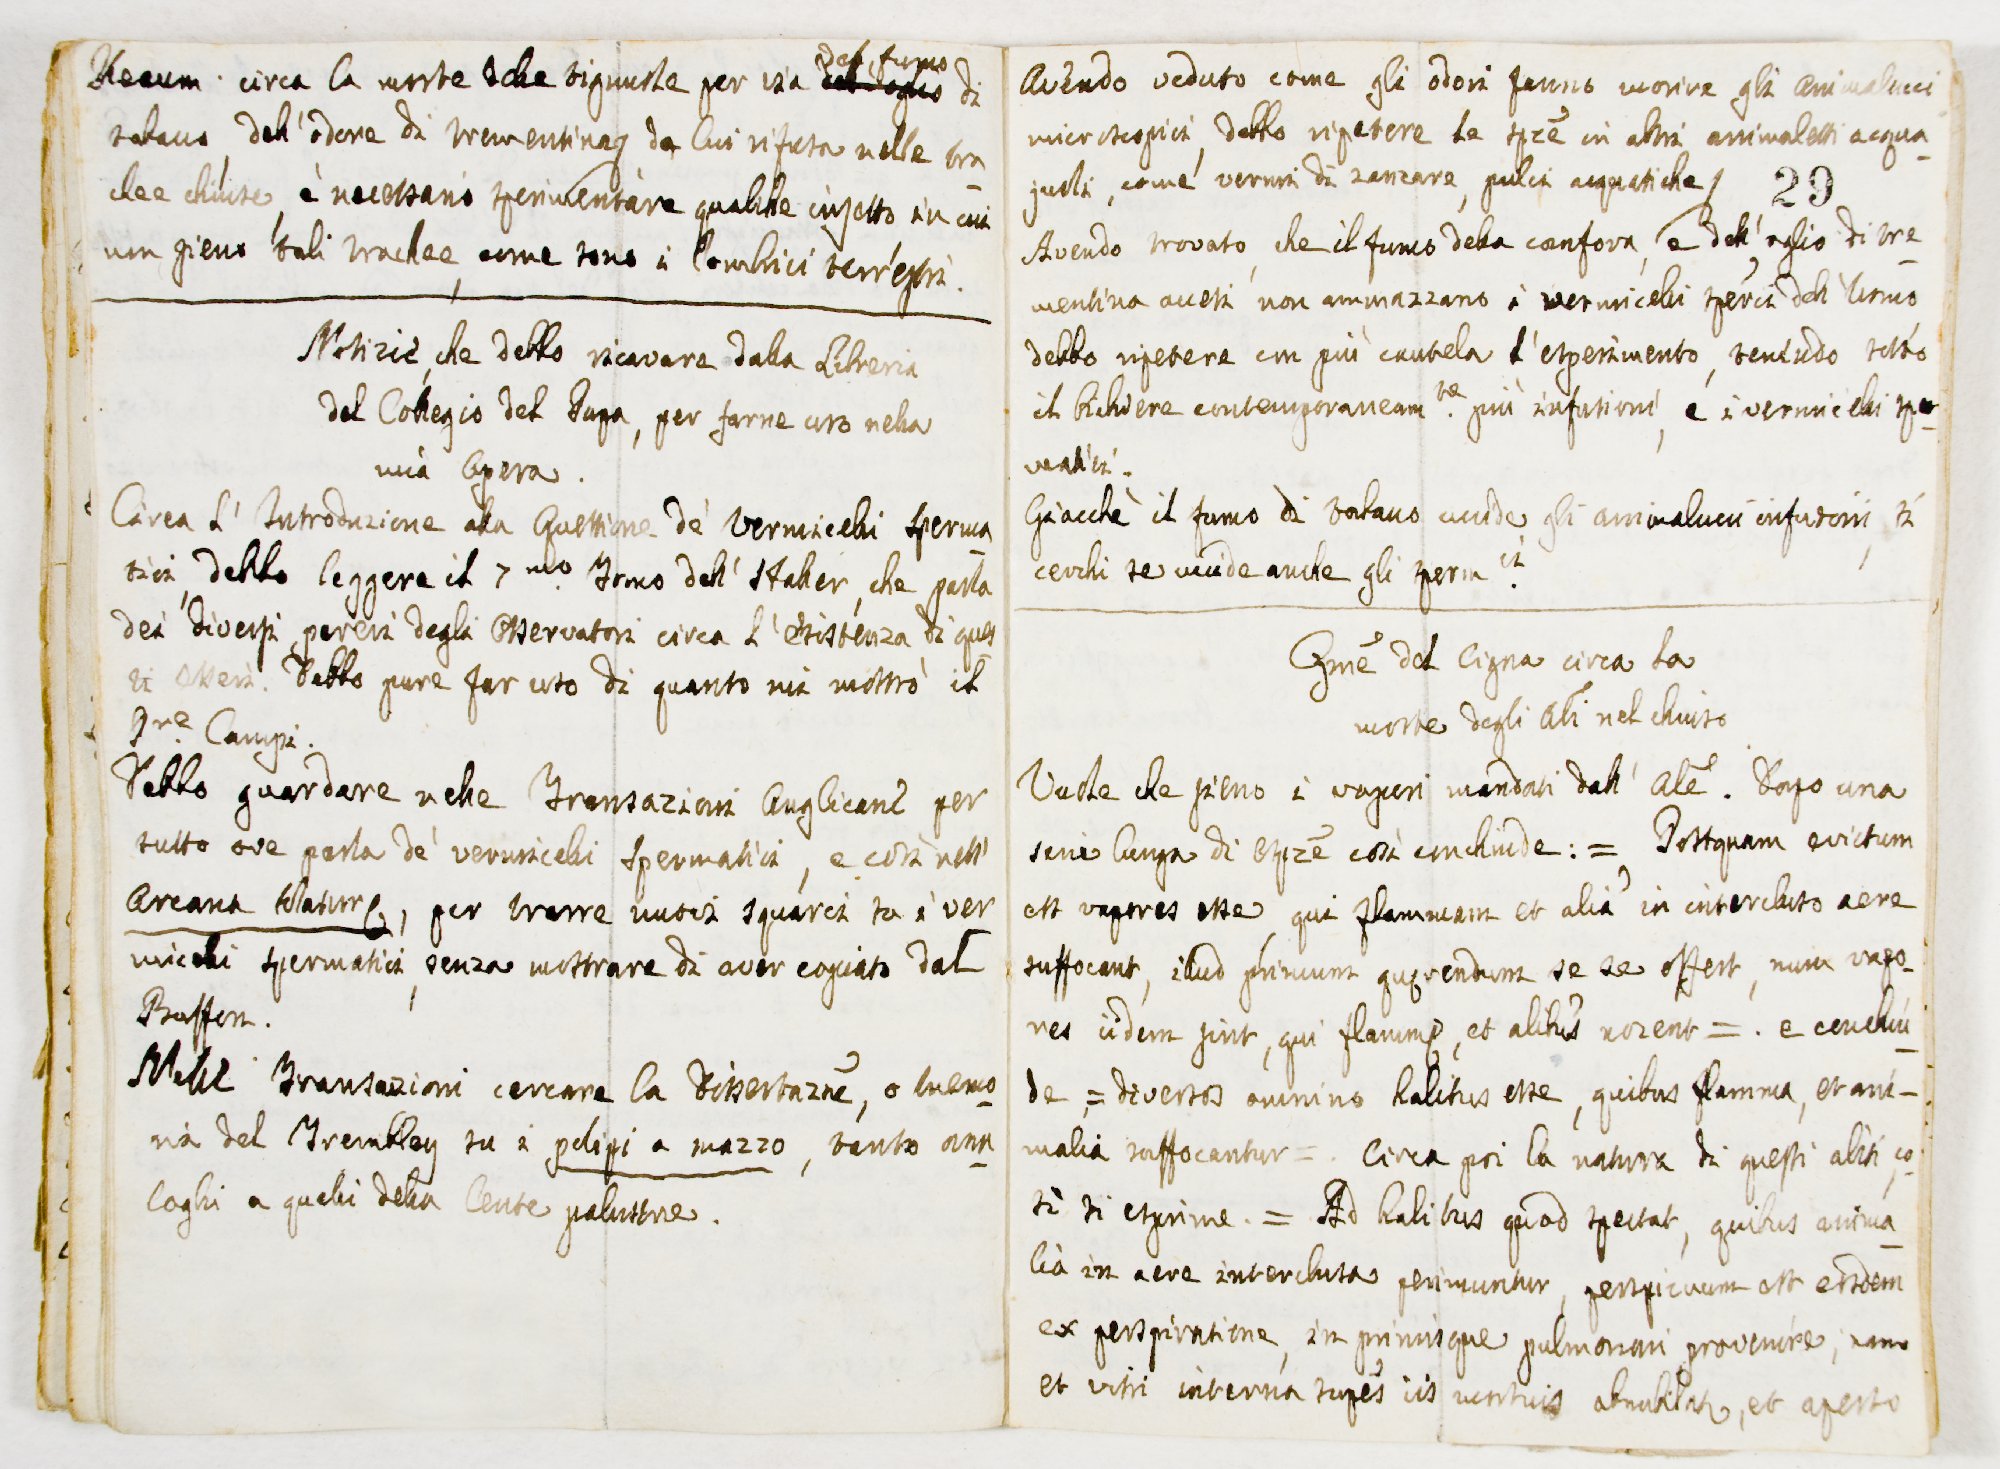 Reaum. circa la morte delle tignuole per via del fumo di
tabacco dell'odore di trementina, da lui rifusa nelle tra
chee chiuse, è necessario sperimentare qualche insetto in cui
non sieno tali trachee, come sono i lombrici terrestri.
Notizie, che debbo ricavare dalla Libreria
del Collegio del Papa, per farne uso nella
mia Opera.
Circa l'Introduzione alla Questione de' Vermicelli sperma
tici, debbo leggere il 7.mo Tomo dell'Haller, che parla
dei diversi pareri degli Osservatori circa l'esistenza di ques
ti esseri. Debbo pure far uso di quanto mi mostrò il
P.re Campi.
Debbo guardare nelle Transazioni Anglicane per
tutto ove parla de' vermicelli spermatici, e così nell'
Arcana Naturę, per trarre nuovi squarci su i ver
micelli spermatici, senza mostrare di aver copiato dal
Buffon.
Nelle Transazioni cercare la Dissertaznẽ, o memo-
ria del Trembley su i polipi a mazzo, tanto ana-
loghi a quelli della lente palustre.
Avendo veduto come gli odori fanno morire gli animalucci
microscopici, debbo ripetere le spzẽ in altri animaletti acqua-
juoli, come vermi di zanzare, pulci acquatiche
29
Avendo trovato, che il fumo della canfora, e dell'oglio di tre-
mentina accesi non ammazzano i vermicelli sperci dell'Uomo
debbo ripetere con più cautela l'esperimento, tenendo sotto
il bicchiere contemporaneam.te più infusioni, e i vermicelli sper-
matici.
Giacchè il fumo di tabacco uccide gli animalucci infusorii, si
cerchi se uccide anche gli sperm.ci
Opnẽ del Cigna circa la
morte degli Ali nel chiuso
Vuole che sieno i vapori mandati dall'Alẽ. Dopo una
serie lunga di espzẽ così conchiude: = Postquam evictum
est vapores esse, qui flammam et alia in intercluso aere
suffocant, illud primum quęrendum se se offert, num vapo-
res iidem sint, qui flammę, et alibus nocent =. e conchiu-
de, = diversos omnino halitus esse, quibus flamma, et ani-
malia suffocantur =. Circa poi la natura di questi aliti, co-
sì si esprime. = Ad halitus quod spectat, quibus anima-
lia in aere interclusa perimuntur, perspicuum est eosdem
ex perspiratione, in primisque pulmonari provenire, nam
et vitri interna supes iis mortuis obnubilatr, et aperto